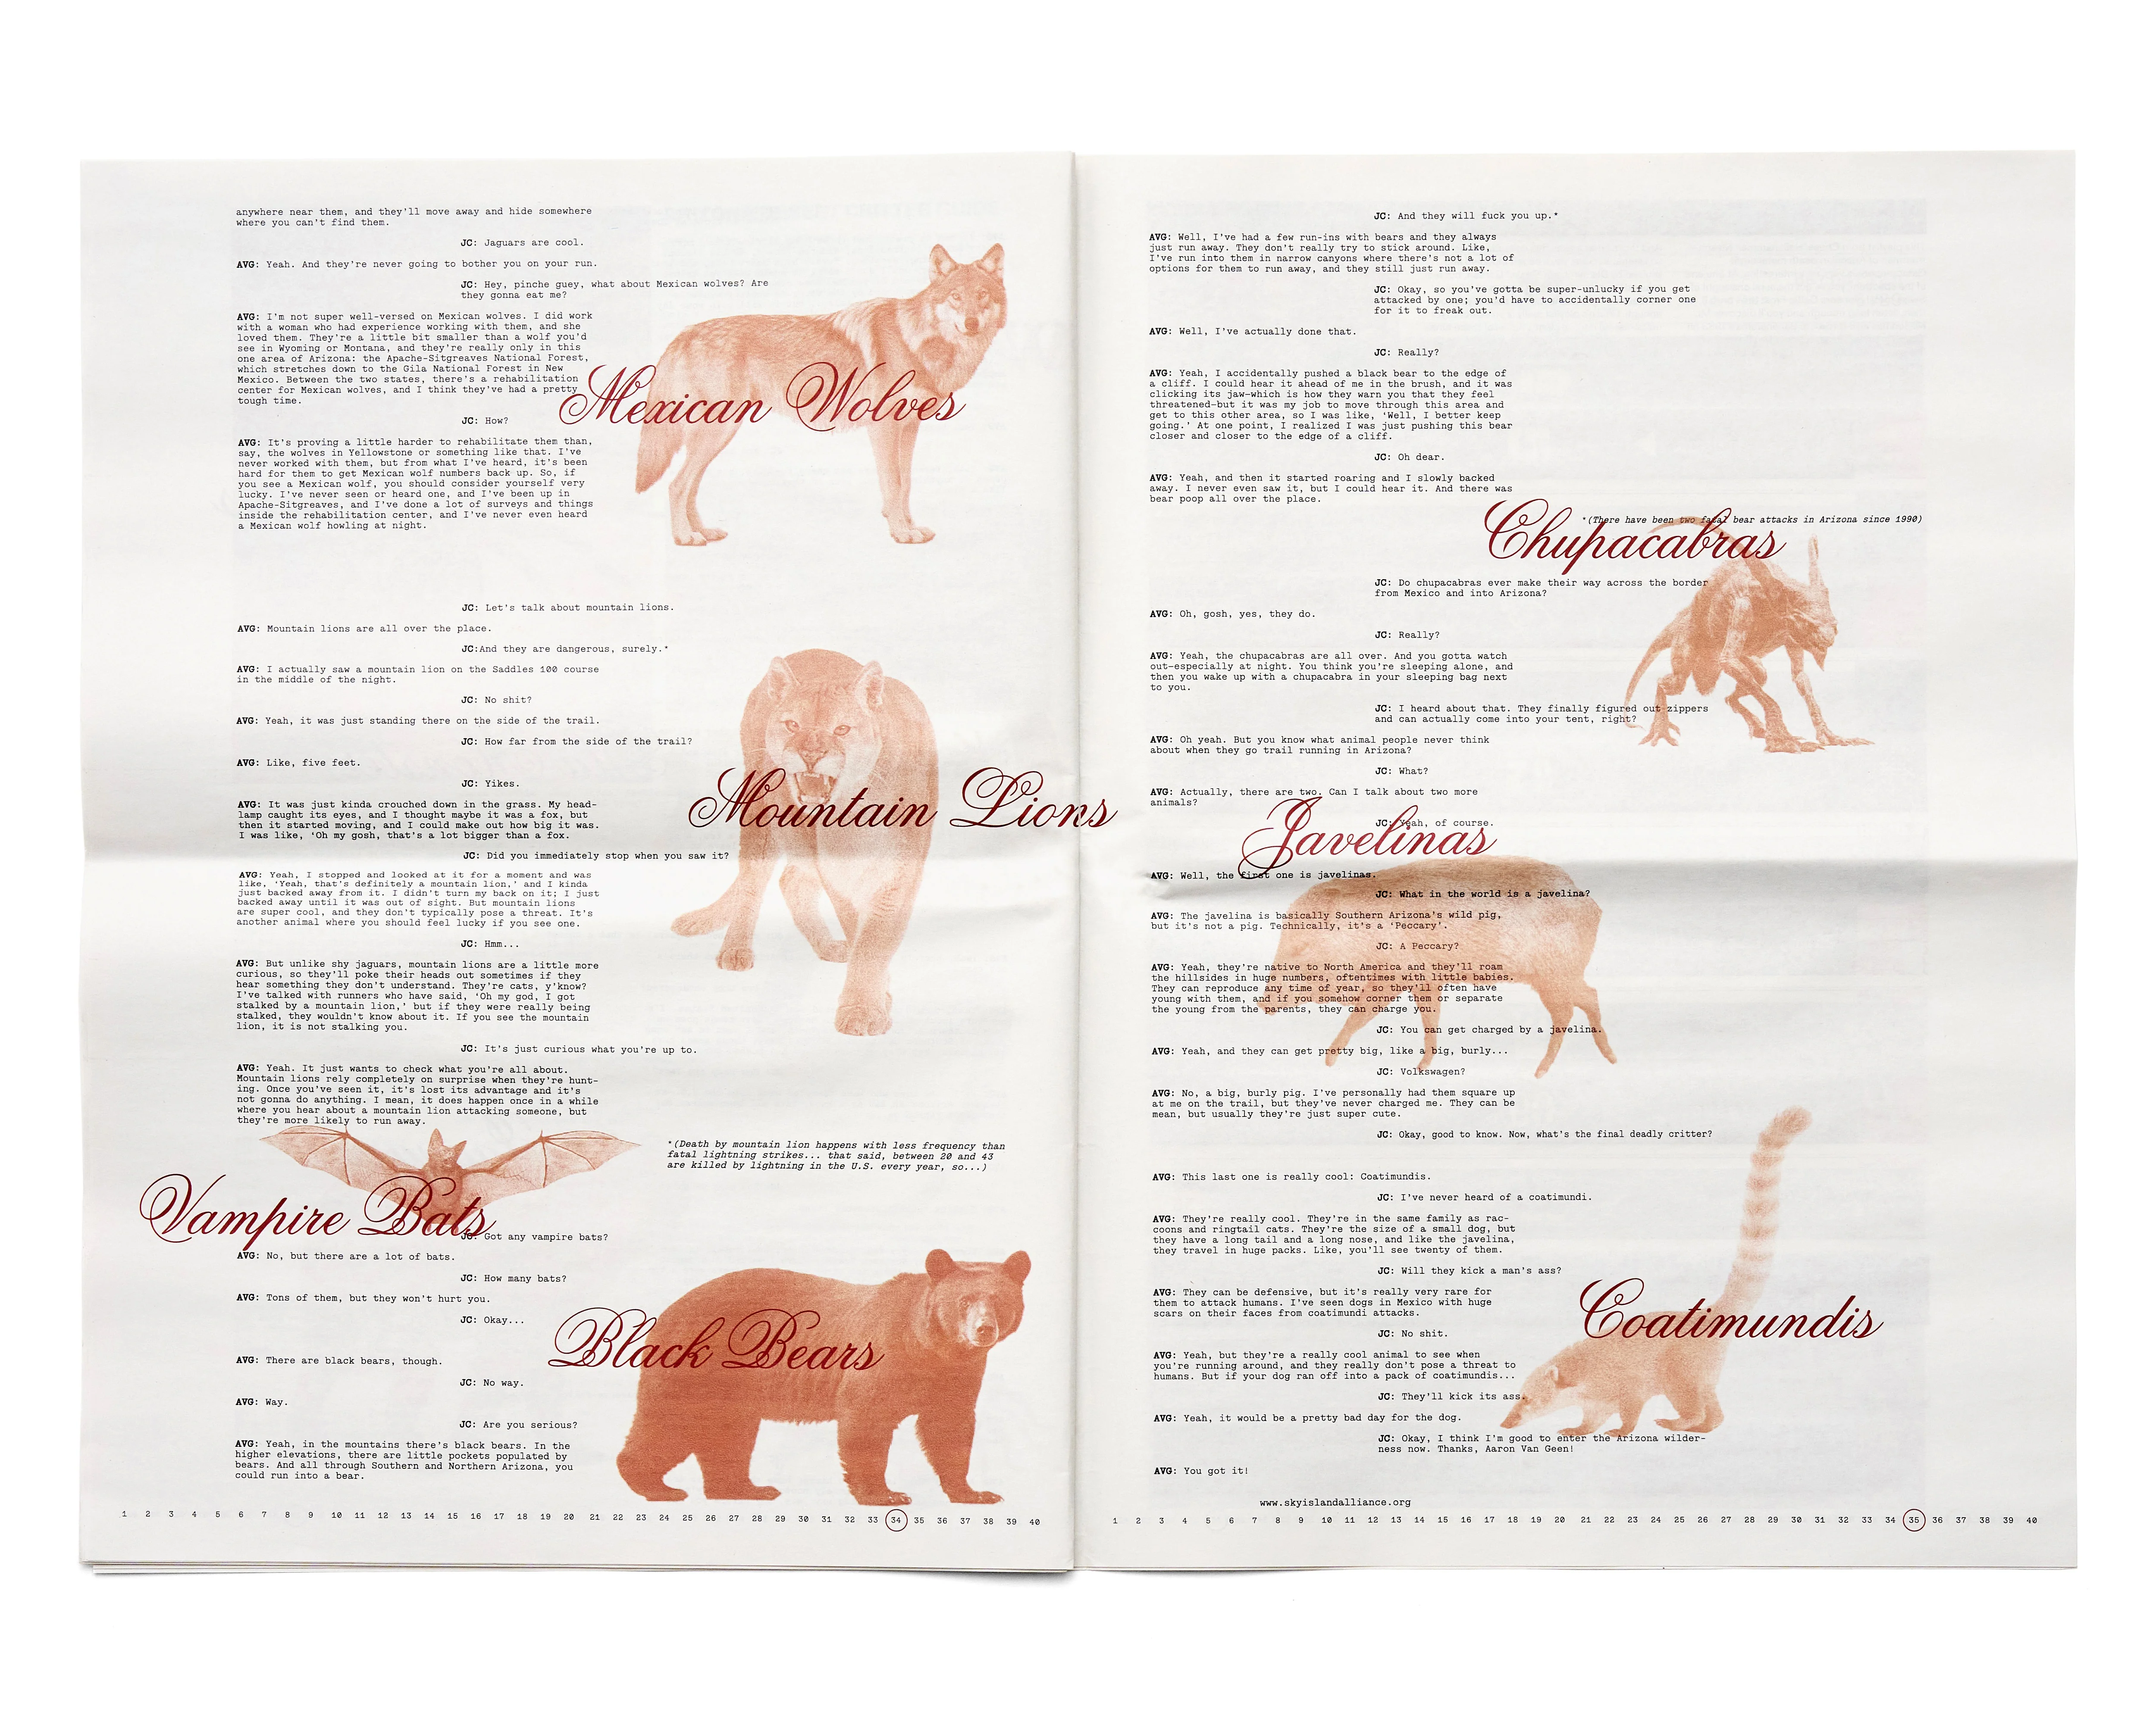 anywhere near them, and they'll move away and hide somewhere
where you can't find them.
JC: Jaguars are cool.
AVG: Yeah. And they're never going to bother you on your run.
JC: Hey, pinche guey, what about Mexican wolves? Are
they gonna eat me?
AVG: I'm not super well-versed on Mexican wolves. I did work
with a woman who had experience working with them, and she
loved them. They're a little bit smaller than a wolf you'd
see in Wyoming or Montana, and they're really only in this
one area of Arizona: the Apache-Sitgreaves National Forest,
which stretches down to the Gila National Forest in New
Mexico. Between the two states, there's a rehabilitation
center for Mexican wolves, and I think they've had a pretty
tough time.
Mexican Wolves
JC: How?
AVG: It's proving a little harder to rehabilitate them than,
say, the wolves in Yellowstone or something like that. I've
never worked with them, but from what I've heard, it's been
hard for them to get Mexican wolf numbers back up. So, if
you see a Mexican wolf, you should consider yourself very
lucky. I've never seen or heard one, and I've been up in
Apache-Sitgreaves, and I've done a lot of surveys and things
inside the rehabilitation center, and I've never even heard
a Mexican wolf howling at night.
JC: Let's talk about mountain lions.
AVG: Mountain lions are all over the place.
JC:And they are dangerous, surely.*
AVG: I actually saw a mountain lion on the Saddles 100 course
in the middle of the night.
JC: No shit?
AVG: Yeah, it was just standing there on the side of the trail.
JC: How far from the side of the trail?
AVG: Like, five feet.
JC: Yikes.
Mountain Lions
AVG: It was just kinda crouched down in the grass. My head-
lamp caught its eyes, and I thought maybe it was a fox, but
then it started moving, and I could make out how big it was.
I was like, 'Oh my gosh, that's a lot bigger than a fox.
JC: Did you immediately stop when you saw it?
AVG: Yeah, I stopped and looked at it for a moment and was
like, 'Yeah, that's definitely a mountain lion,' and I kinda
just backed away from it. I didn't turn my back on it; I just
backed away until it was out of sight. But mountain lions
are super cool, and they don't typically pose a threat. It's
another animal where you should feel lucky if you see one.
JC: Hmm...
AVG: But unlike shy jaguars, mountain lions are a little more
curious, so they'll poke their heads out sometimes if they
hear something they don't understand. They're cats, y'know?
I've talked with runners who have said, 'Oh my god, I got
stalked by a mountain lion,' but if they were really being
stalked, they wouldn't know about it. If you see the mountain
lion, it is not stalking you.
JC: It's just curious what you're up to.
AVG: Yeah. It just wants to check what you're all about.
Mountain lions rely completely on surprise when they're hunt-
ing. Once you've seen it, it's lost its advantage and it's
not gonna do anything. I mean, it does happen once in a while
where you hear about a mountain lion attacking someone, but
they're more likely to run away.
*(Death by mountain lion happens with less frequency than
fatal lightning strikes... that said, between 20 and 43
are killed by lightning in the U.S. every year, so...)
Vampire Bats
JC: Got any vampire bats?
AVG: No, but there are a lot of bats.
JC: How many bats?
AVG: Tons of them, but they won't hurt you.
JC: Okay...
Black Bears
AVG: There are black bears, though.
JC: No way.
AVG: Way.
JC: Are you serious?
AVG: Yeah, in the mountains there's black bears. In the
higher elevations, there are little pockets populated by
bears. And all through Southern and Northern Arizona, you
could run into a bear.
1 2 3 4 5 6 7 8 9 10 11 12 13 14 15 16 17 18 19 20 21 22 23 24 25 26 27 28 29 30 31 32 33 34 35 36 37 38 39 40
JC: And they will fuck you up.*
AVG: Well, I've had a few run-ins with bears and they always
just run away. They don't really try to stick around. Like,
I've run into them in narrow canyons where there's not a lot of
options for them to run away, and they still just run away.
JC: Okay, so you've gotta be super-unlucky if you get
attacked by one; you'd have to accidentally corner one
for it to freak out.
AVG: Well, I've actually done that.
JC: Really?
AVG: Yeah, I accidentally pushed a black bear to the edge of
a cliff. I could hear it ahead of me in the brush, and it was
clicking its jaw—which is how they warn you that they feel
threatened—but it was my job to move through this area and
get to this other area, so I was like, 'Well, I better keep
going.' At one point, I realized I was just pushing this bear
closer and closer to the edge of a cliff.
JC: Oh dear.
AVG: Yeah, and then it started roaring and I slowly backed
away. I never even saw it, but I could hear it. And there was
bear poop all over the place.
*(There have been two fatal bear attacks in Arizona since 1990)
Chupacabras
JC: Do chupacabras ever make their way across the border
from Mexico and into Arizona?
AVG: Oh, gosh, yes, they do.
JC: Really?
AVG: Yeah, the chupacabras are all over. And you gotta watch
out—especially at night. You think you're sleeping alone, and
then you wake up with a chupacabra in your sleeping bag next
to you.
JC: I heard about that. They finally figured out zippers
and can actually come into your tent, right?
AVG: Oh yeah. But you know what animal people never think
about when they go trail running in Arizona?
JC: What?
AVG: Actually, there are two. Can I talk about two more
animals?
JC: Yeah, of course.
Javelinas
AVG: Well, the first one is javelinas.
JC: What in the world is a javelina?
AVG: The javelina is basically Southern Arizona's wild pig,
but it's not a pig. Technically, it's a 'Peccary'.
JC: A Peccary?
AVG: Yeah, they're native to North America and they'll roam
the hillsides in huge numbers, oftentimes with little babies.
They can reproduce any time of year, so they'll often have
young with them, and if you somehow corner them or separate
the young from the parents, they can charge you.
JC: You can get charged by a javelina.
AVG: Yeah, and they can get pretty big, like a big, burly...
JC: Volkswagen?
AVG: No, a big, burly pig. I've personally had them square up
at me on the trail, but they've never charged me. They can be
mean, but usually they're just super cute.
JC: Okay, good to know. Now, what's the final deadly critter?
AVG: This last one is really cool: Coatimundis.
JC: I've never heard of a coatimundi.
AVG: They're really cool. They're in the same family as rac-
coons and ringtail cats. They're the size of a small dog, but
they have a long tail and a long nose, and like the javelina,
they travel in huge packs. Like, you'll see twenty of them.
JC: Will they kick a man's ass?
Coatimundis
AVG: They can be defensive, but it's really very rare for
them to attack humans. I've seen dogs in Mexico with huge
scars on their faces from coatimundi attacks.
JC: No shit.
AVG: Yeah, but they're a really cool animal to see when
you're running around, and they really don't pose a threat to
humans. But if your dog ran off into a pack of coatimundis...
JC: They'll kick its ass.
AVG: Yeah, it would be a pretty bad day for the dog.
JC: Okay, I think I'm good to enter the Arizona wilder-
ness now. Thanks, Aaron Van Geen!
AVG: You got it!
www.skyislandalliance.org
1 2 3 4 5 6 7 8 9 10 11 12 13 14 15 16 17 18 19 20 21 22 23 24 25 26 27 28 29 30 31 32 33 34 35 36 37 38 39 40